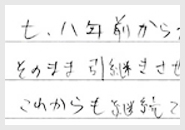 七、八年前から
そのまま引継きさせ
これからも継続て